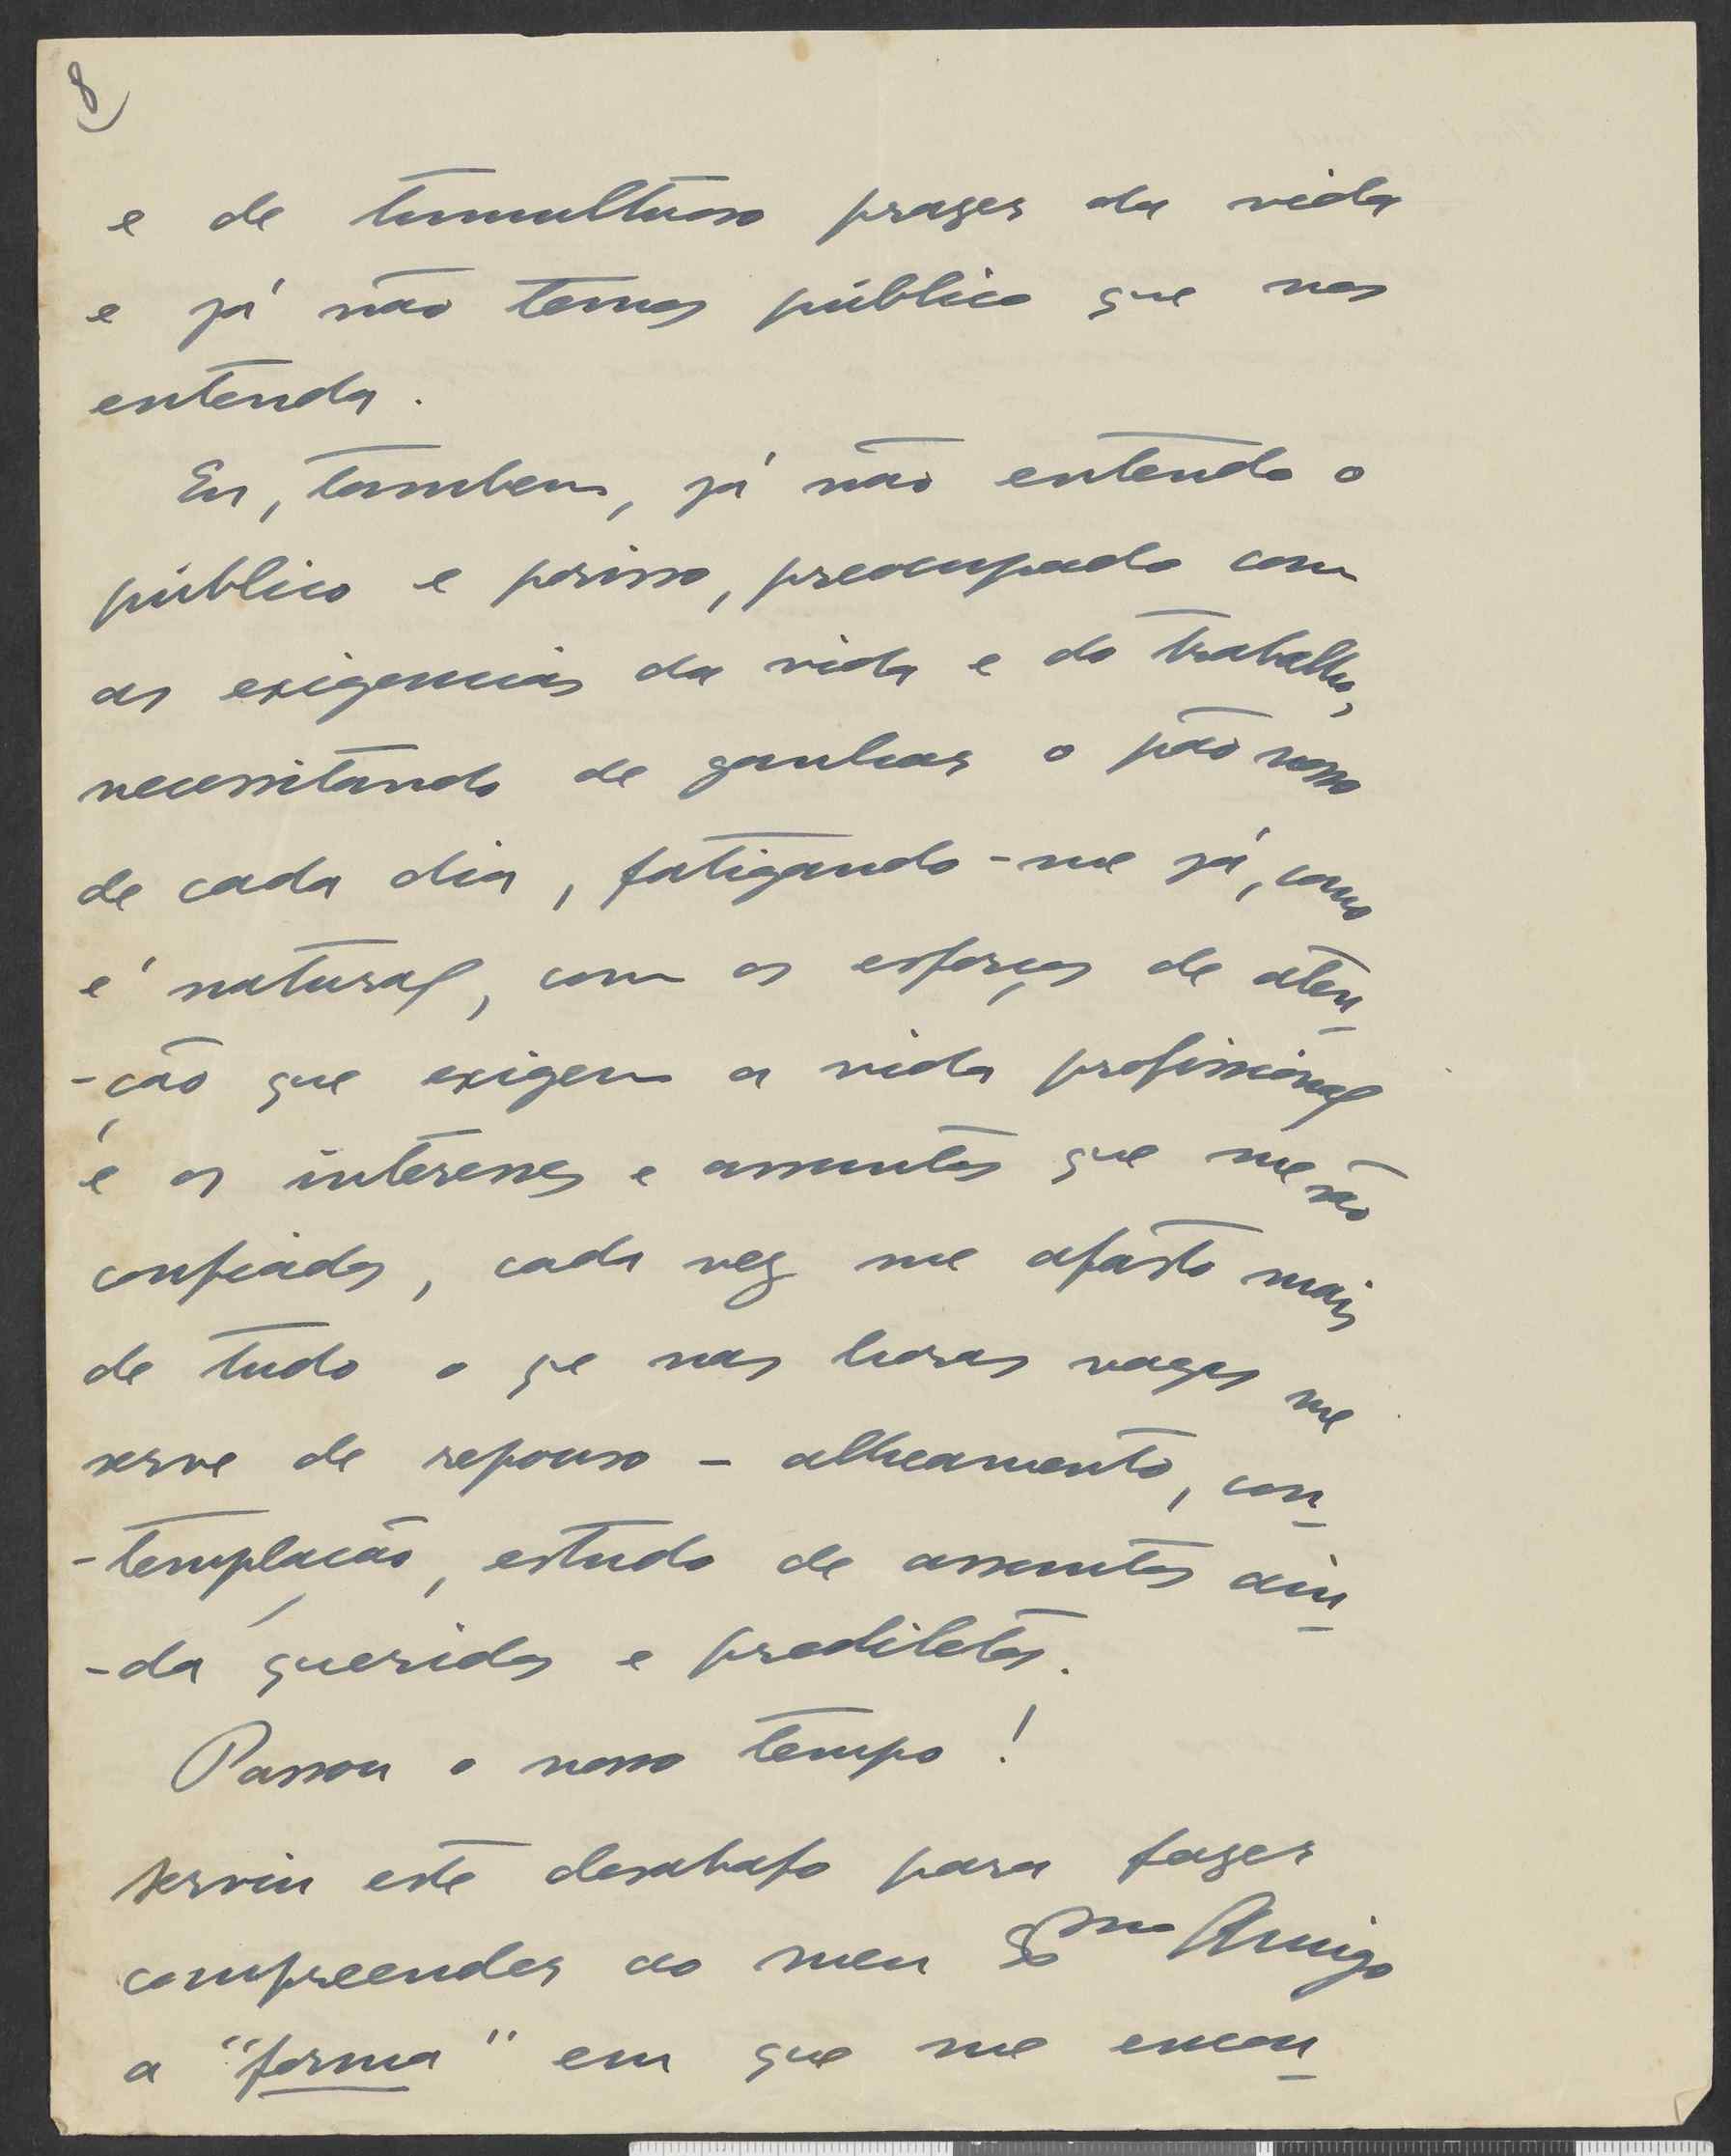 8)
e de tumultuoso prazer da vida
e já não temos público que nos
entenda.
Eu, tambem, já não entendo o
público e porisso, preocupado com
as exigencias da vida e do trabalho,
necessitando de ganhar o pão nosso
de cada dia, fatigando-me já, como
é natural, com os esforços de aten-
-ção que exigem a vida profissional
e os interesses e assuntos que me são
confiados, cada vez me afasto mais
de tudo o qe nas horas vagas me
serve de repouso - alheamento, con-
-templação, estudo de assuntos ain-
-da queridos e prediletos.
Passou o nosso tempo!
Serviu este desabafo para fazer
compreender ao meu Amigo
a "forma" em que me encon-